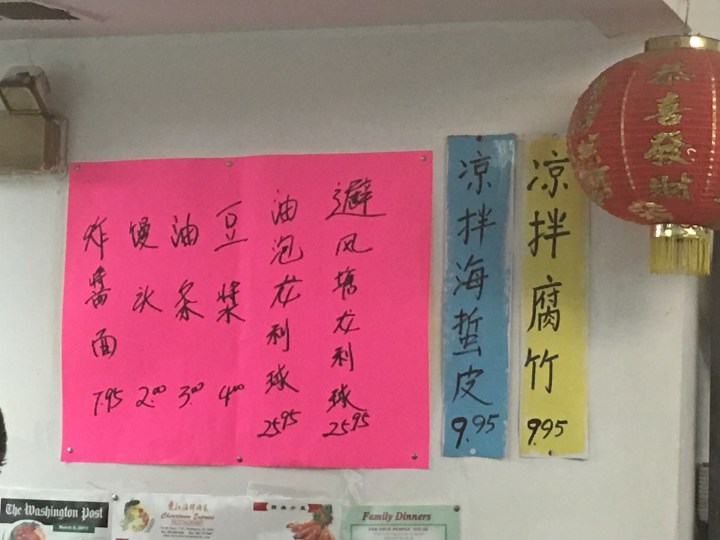 避风塘龙利球 25.95
油泡龙利球 25.95
豆浆 4.00
油条 3.00
馒头 2.00
炸酱面 7.95
凉拌海蜇皮 9.95
凉拌腐竹 9.95
恭喜發財
The Washington Post
Chinatown Express
Family Dinners